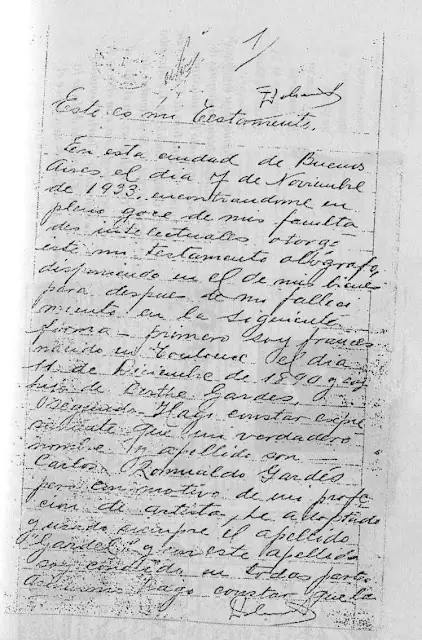 1/
Este es mi Testamento.
En esta ciudad de Buenos
Aires el dia 7 de Noviembre
de 1933. encontrandome en
pleno goce de mis faculta
des intelectuales otorgo
este mi testamento ológrafo,
disponiendo en el de mis bienes
para despues de mi falleci
miento en la siguiente
forma – primero soy frances
nacido en Toulouse el dia
11 de Diciembre de 1890 y soy
hijo de Berthe Gardes.
Segundo. Hago constar expre
samente que mi verdadero
nombre y apellido son –
Carlos Romualdo Gardés
pero con motivo de mi profe
cion de artista, he adoptado
y usado siempre el apellido
"Gardel" y con este apellido
soy conocido en todas partes
asi mismo hago constar que la